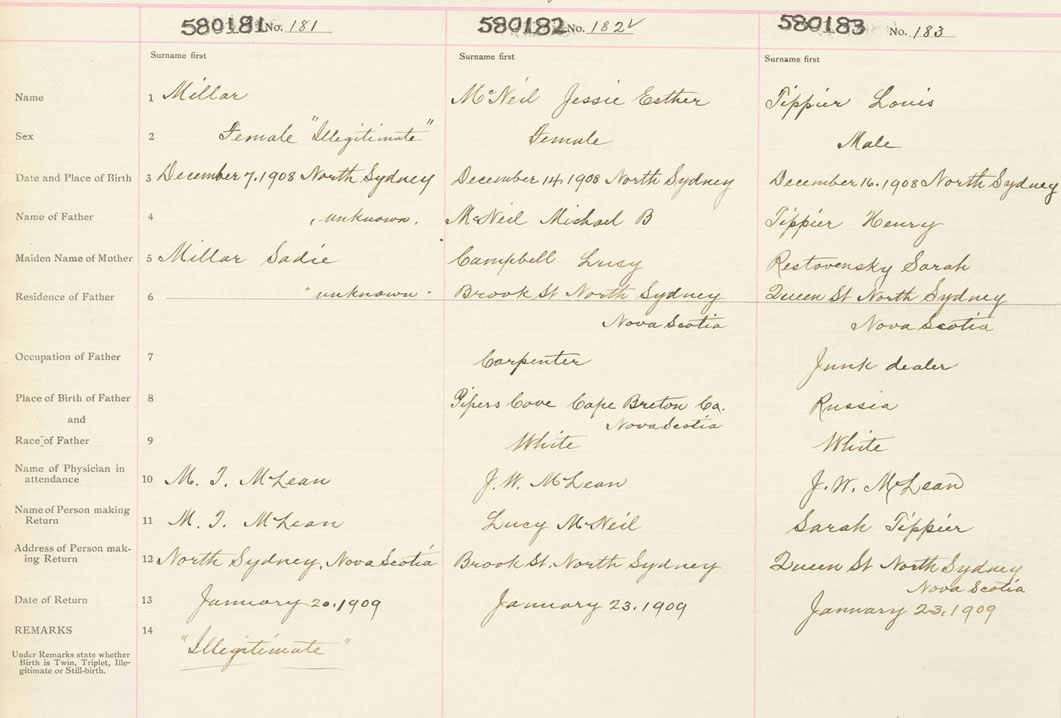 580181 No. 181 580182 No. 182 580183 No. 183
Surname first Surname first Surname first
Name 1 Millar McNeil Jessie Esther Tippier Louis
Sex 2 Female "Illegitimate" Female Male
Date and Place of Birth 3 December 7, 1908 North Sydney December 14, 1908 North Sydney December 16. 1908 North Sydney
Name of Father 4 "unknown. McNeil Michael B Tippier Henry
Maiden Name of Mother 5 Millar Sadie Campbell Lucy Restovensky Sarah
Residence of Father 6 "unknown" Brook St North Sydney Queen St North Sydney
Nova Scotia Nova Scotia
Occupation of Father 7 Carpenter Junk dealer
Place of Birth of Father 8 Pipers Cove Cape Breton Co. Russia
and Nova Scotia
Race of Father 9 White White
Name of Physician in
attendance 10 M. T. McLean J. W. McLean J. W. McLean
Name of Person making
Return 11 M. T. McLean Lucy McNeil Sarah Tippier
Address of Person mak-
ing Return 12 North Sydney, Nova Scotia Brook St. North Sydney Queen St North Sydney
Nova Scotia
Date of Return 13 January 20. 1909 January 23. 1909 January 23. 1909
REMARKS 14 "Illegitimate"
Under Remarks state whether
Birth is Twin, Triplet, Ille-
gitimate or Still-birth.